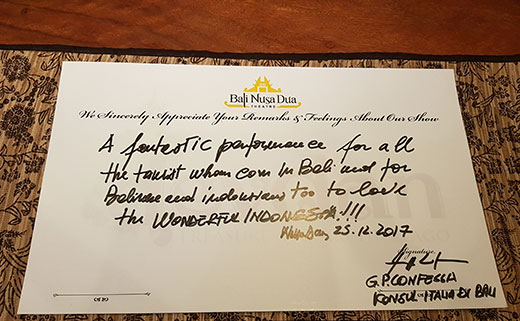 Bali Nusa Dua
THEATRE
We Sincerely Appreciate Your Remarks & Feelings About Our Show
A fantastic performance for all
the tourist whom com in Bali and for
Balinese and indonesians too to look
the WONDERFUL INDONESIA!!!
25.12.2017
Signature
G.P. CONFESSA
KONSUL ITALIA DI BALI